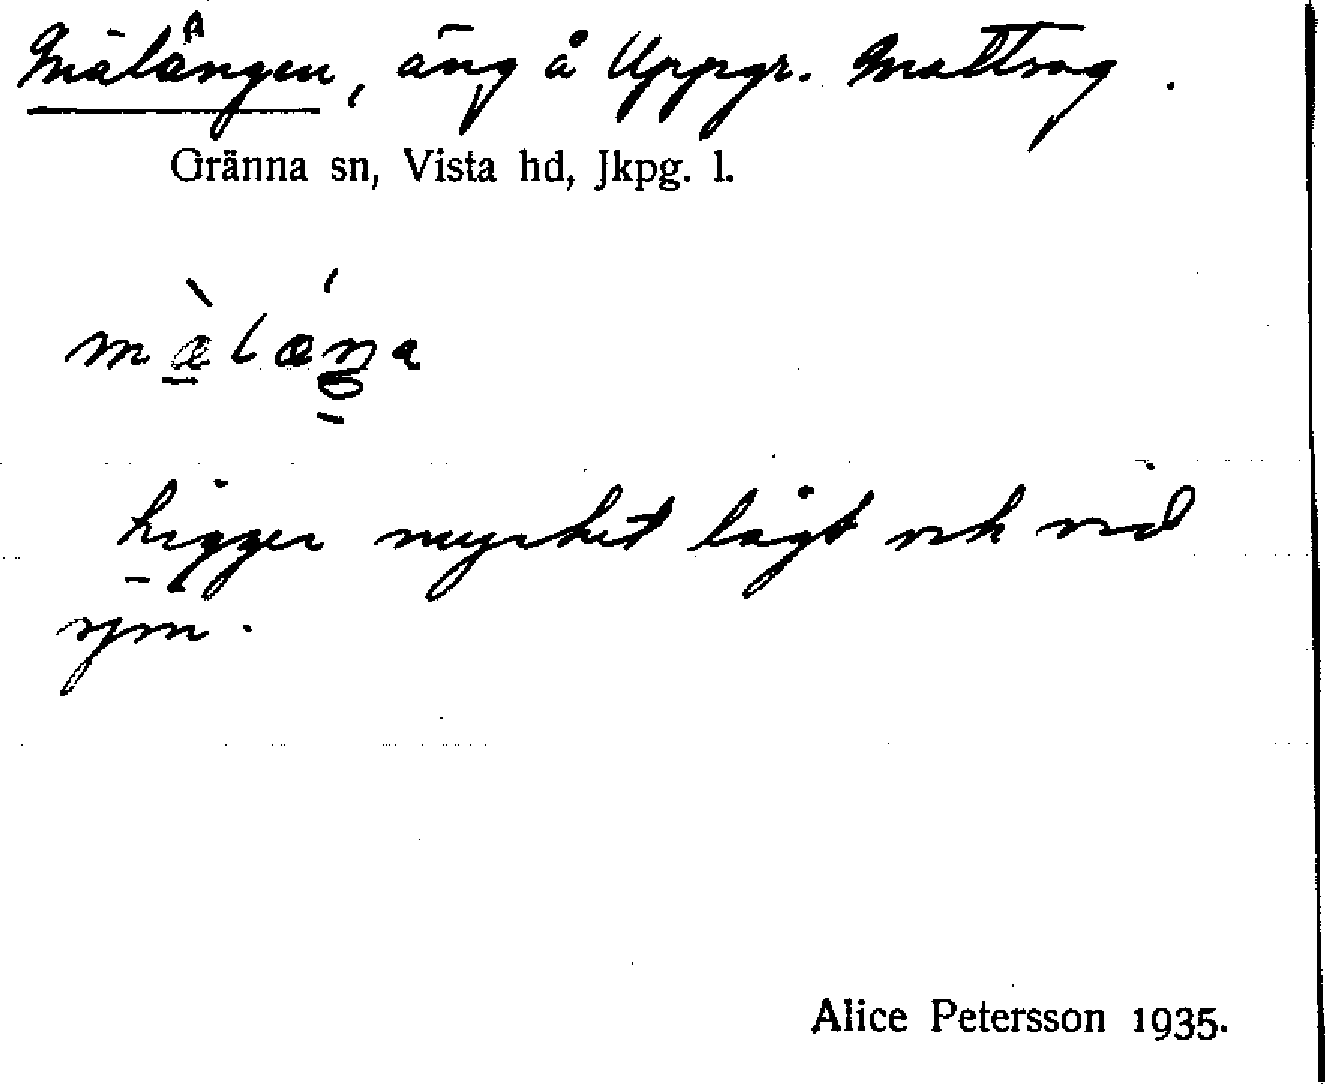 Mälängen, äng å Uppgr. Maltsog.
Gränna sn, Vista hd, Jkpg. l.
mæ̀lǽŋa
Ligger mycket lågt och vid
sjön.
Alice Petersson 1935.